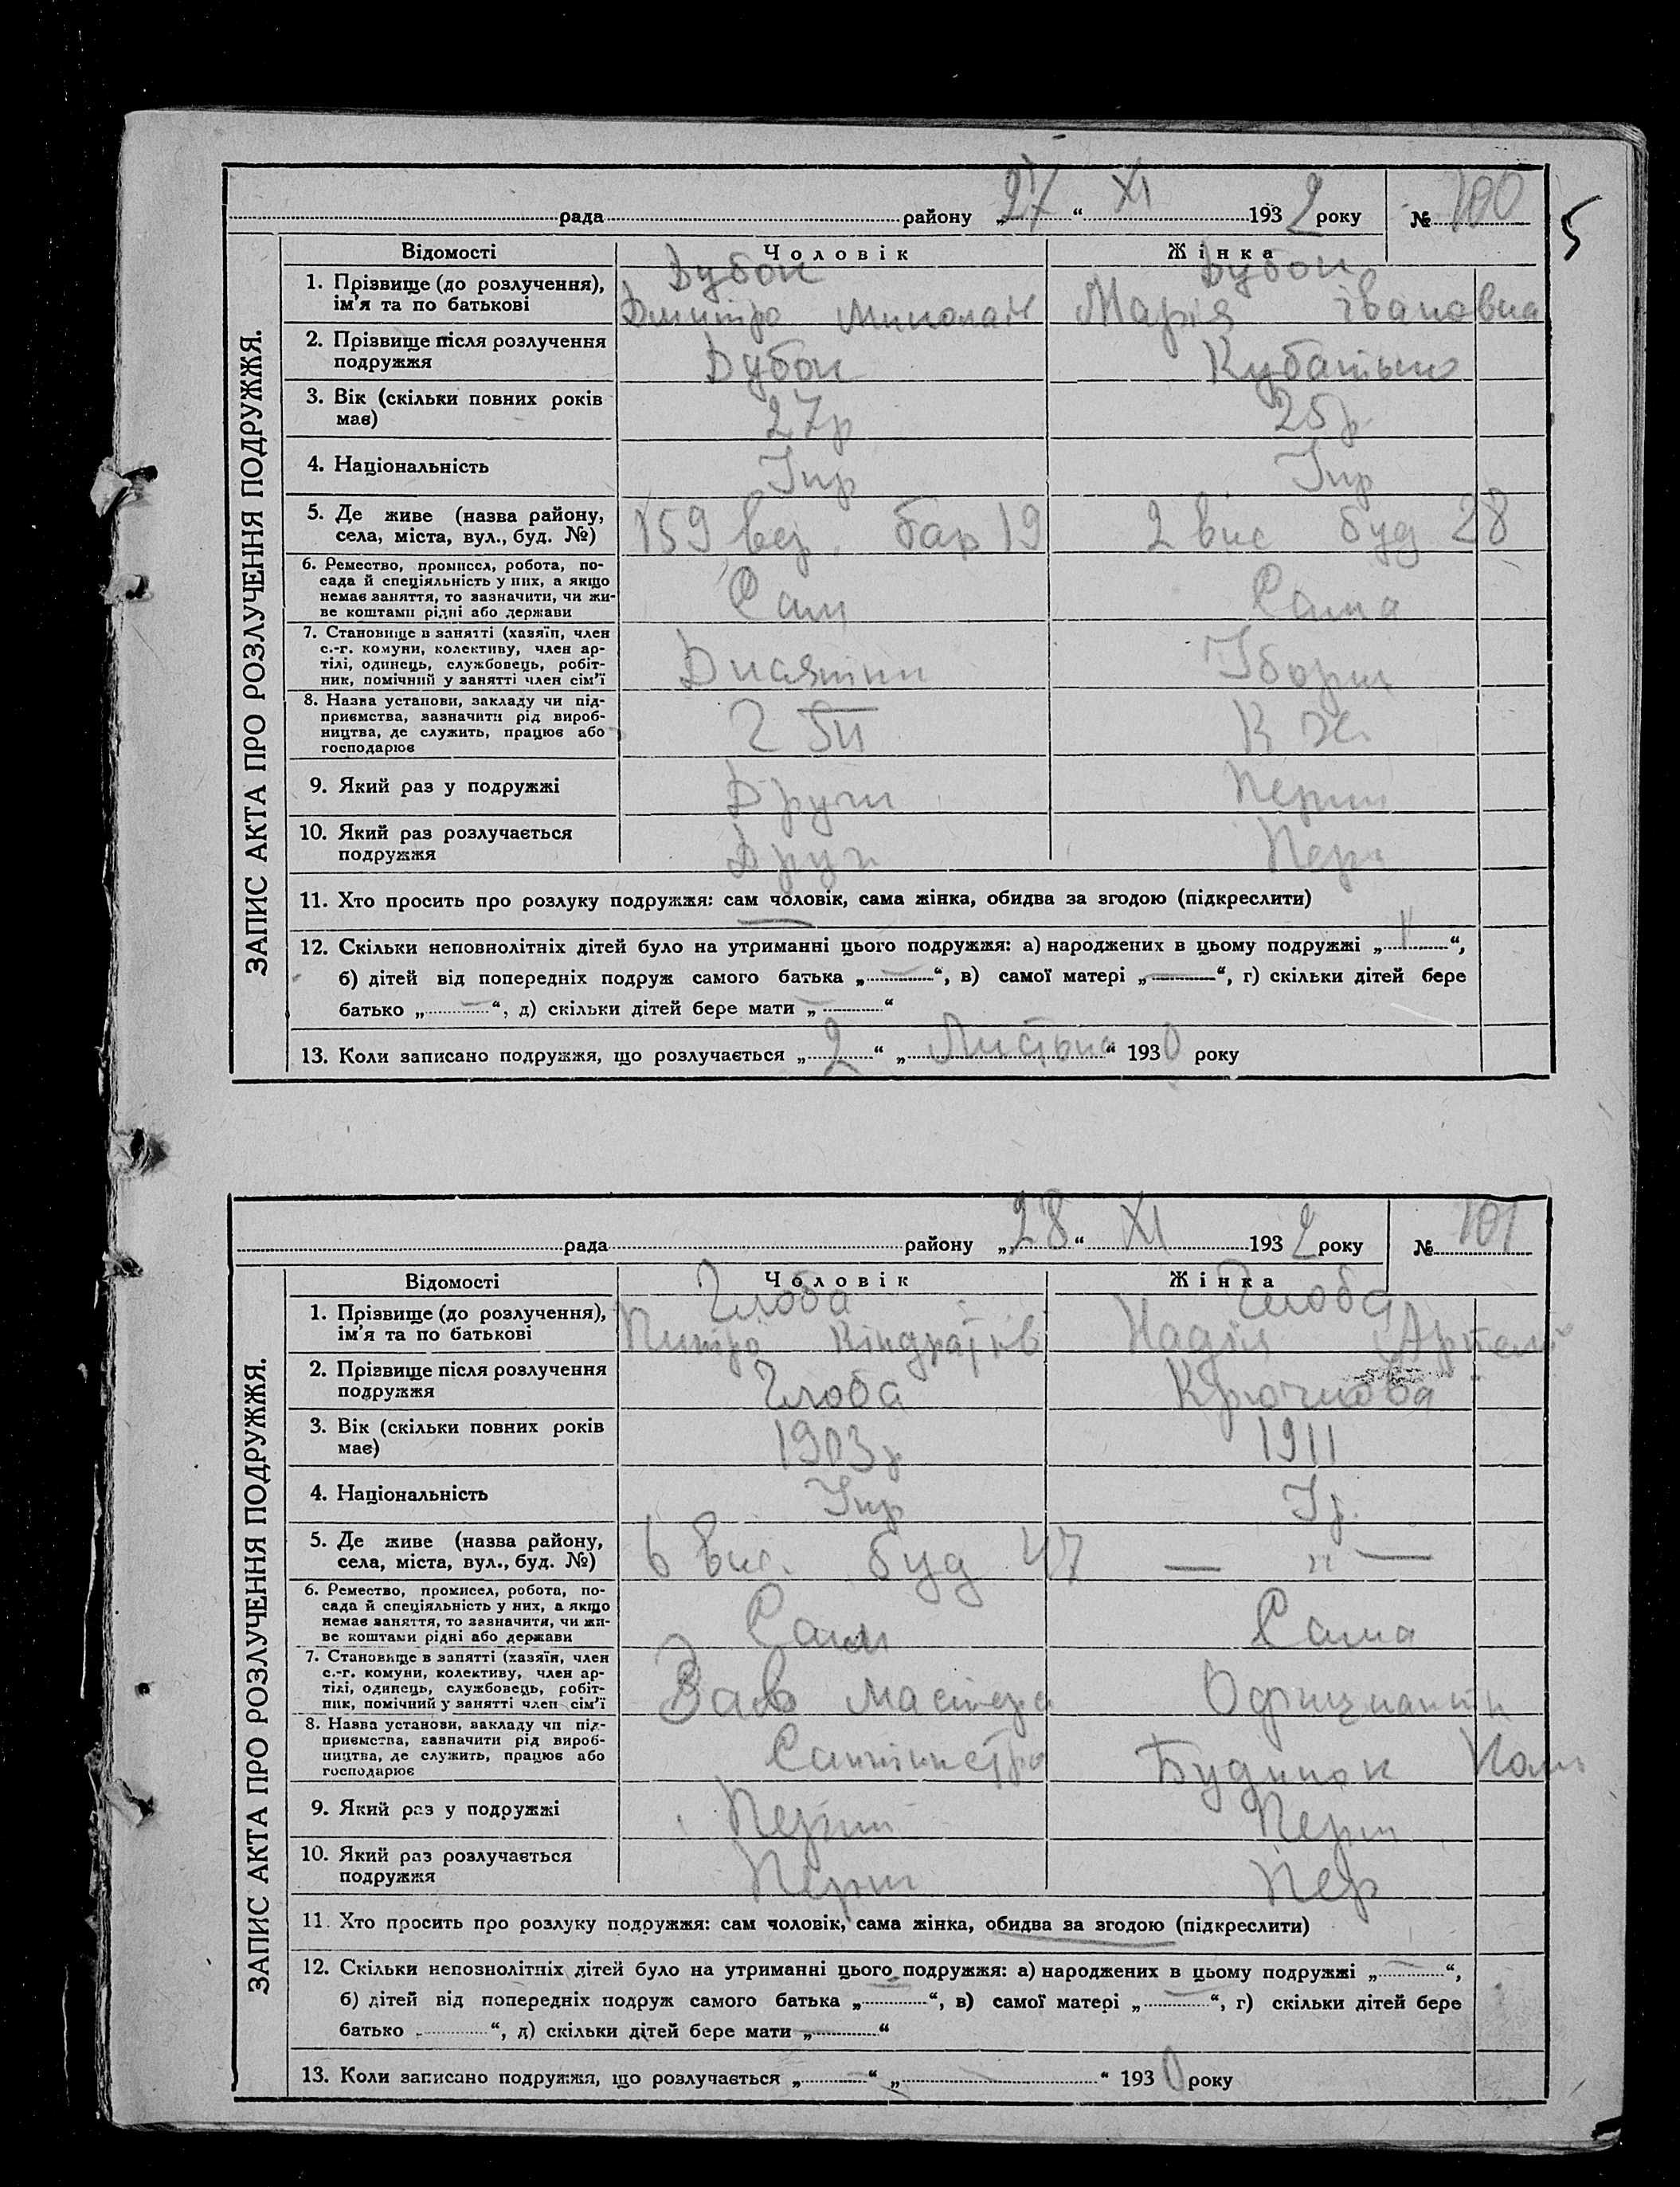 5
ЗАПИС АКТА ПРО РОЗЛУЧЕННЯ ПОДРУЖЖЯ.
рада району „27“ XI 1932 року № 100
Відомості Чоловік Жінка
1. Прізвище (до розлучення), ім'я та по батькові
Дубок Дубок
Дмитро Миколай Марія Івановна
2. Прізвище після розлучення подружжя
Дубок
3. Вік (скільки повних років має)
27р 25р
4. Національність
Укр Укр
5. Де живе (назва району, села, міста, вул., буд. №)
159 бар 19 2 вис буд 28
6. Ремество, промисел, робота, по-
сада й спеціяльність у них, а якщо
немає заняття, то зазначити, чи жи-
ве коштами рідні або держави
Сам Сама
7. Становище в занятті (хазяїн, член
с.-г. комуни, колективу, член ар-
тілі, одинець, службовець, робіт-
ник, помічний у занятті член сім'ї
8. Назва установи, закладу чи під-
приємства, зазначити рід вироб-
ництва, де служить, працює або
господарює
9. Який раз у подружжі
Други Перши
10. Який раз розлучається
подружжя
Друг Пер
11. Хто просить про розлуку подружжя: сам чоловік, сама жінка, обидва за згодою (підкреслити)
12. Скільки неповнолітніх дітей було на утриманні цього подружжя: а) народжених в цьому подружжі „ “,
б) дітей від попередніх подруж самого батька „—“, в) самої матері „—“, г) скільки дітей бере
батько „—“, д) скільки дітей бере мати „—“
13. Коли записано подружжя, що розлучається „2“ „Листьпа“ 1930 року
ЗАПИС АКТА ПРО РОЗЛУЧЕННЯ ПОДРУЖЖЯ.
рада району „28“ XI 1932 року № 101
Відомості Чоловік Жінка
1. Прізвище (до розлучення),
ім'я та по батькові
Глоба Глоба
Кіндратів Надія Артем
2. Прізвище після розлучення
подружжя
Глоба Крючкова
3. Вік (скільки повних років
має)
1903р 1911
4. Національність
Укр Ур.
5. Де живе (назва району,
села, міста, вул., буд. №)
6 вис. буд 47 — " —
6. Ремество, промисел, робота, по-
сада й спеціяльність у них, а якщо
немає заняття, то зазначити, чи жи-
ве коштами рідні або держави
Сам Сама
7. Становище в занятті (хазяїн, член
с.-г. комуни, колективу, член ар-
тілі, одинець, службовець, робіт-
ник, помічний у занятті член сім'ї
Зав мастера Официантк
8. Назва установи, закладу чи під-
приємства, зазначити рід вироб-
ництва, де служить, працює або
господарює
Будинок Ком
9. Який раз у подружжі
Перши Перш
10. Який раз розлучається
подружжя
Перш Пер
11. Хто просить про розлуку подружжя: сам чоловік, сама жінка, обидва за згодою (підкреслити)
12. Скільки неповнолітніх дітей було на утриманні цього подружжя: а) народжених в цьому подружжі „—“,
б) дітей від попередніх подруж самого батька „—“, в) самої матері „—“, г) скільки дітей бере
батько „ “, д) скільки дітей бере мати „—“
13. Коли записано подружжя, що розлучається „—“ „—“ 1930 року